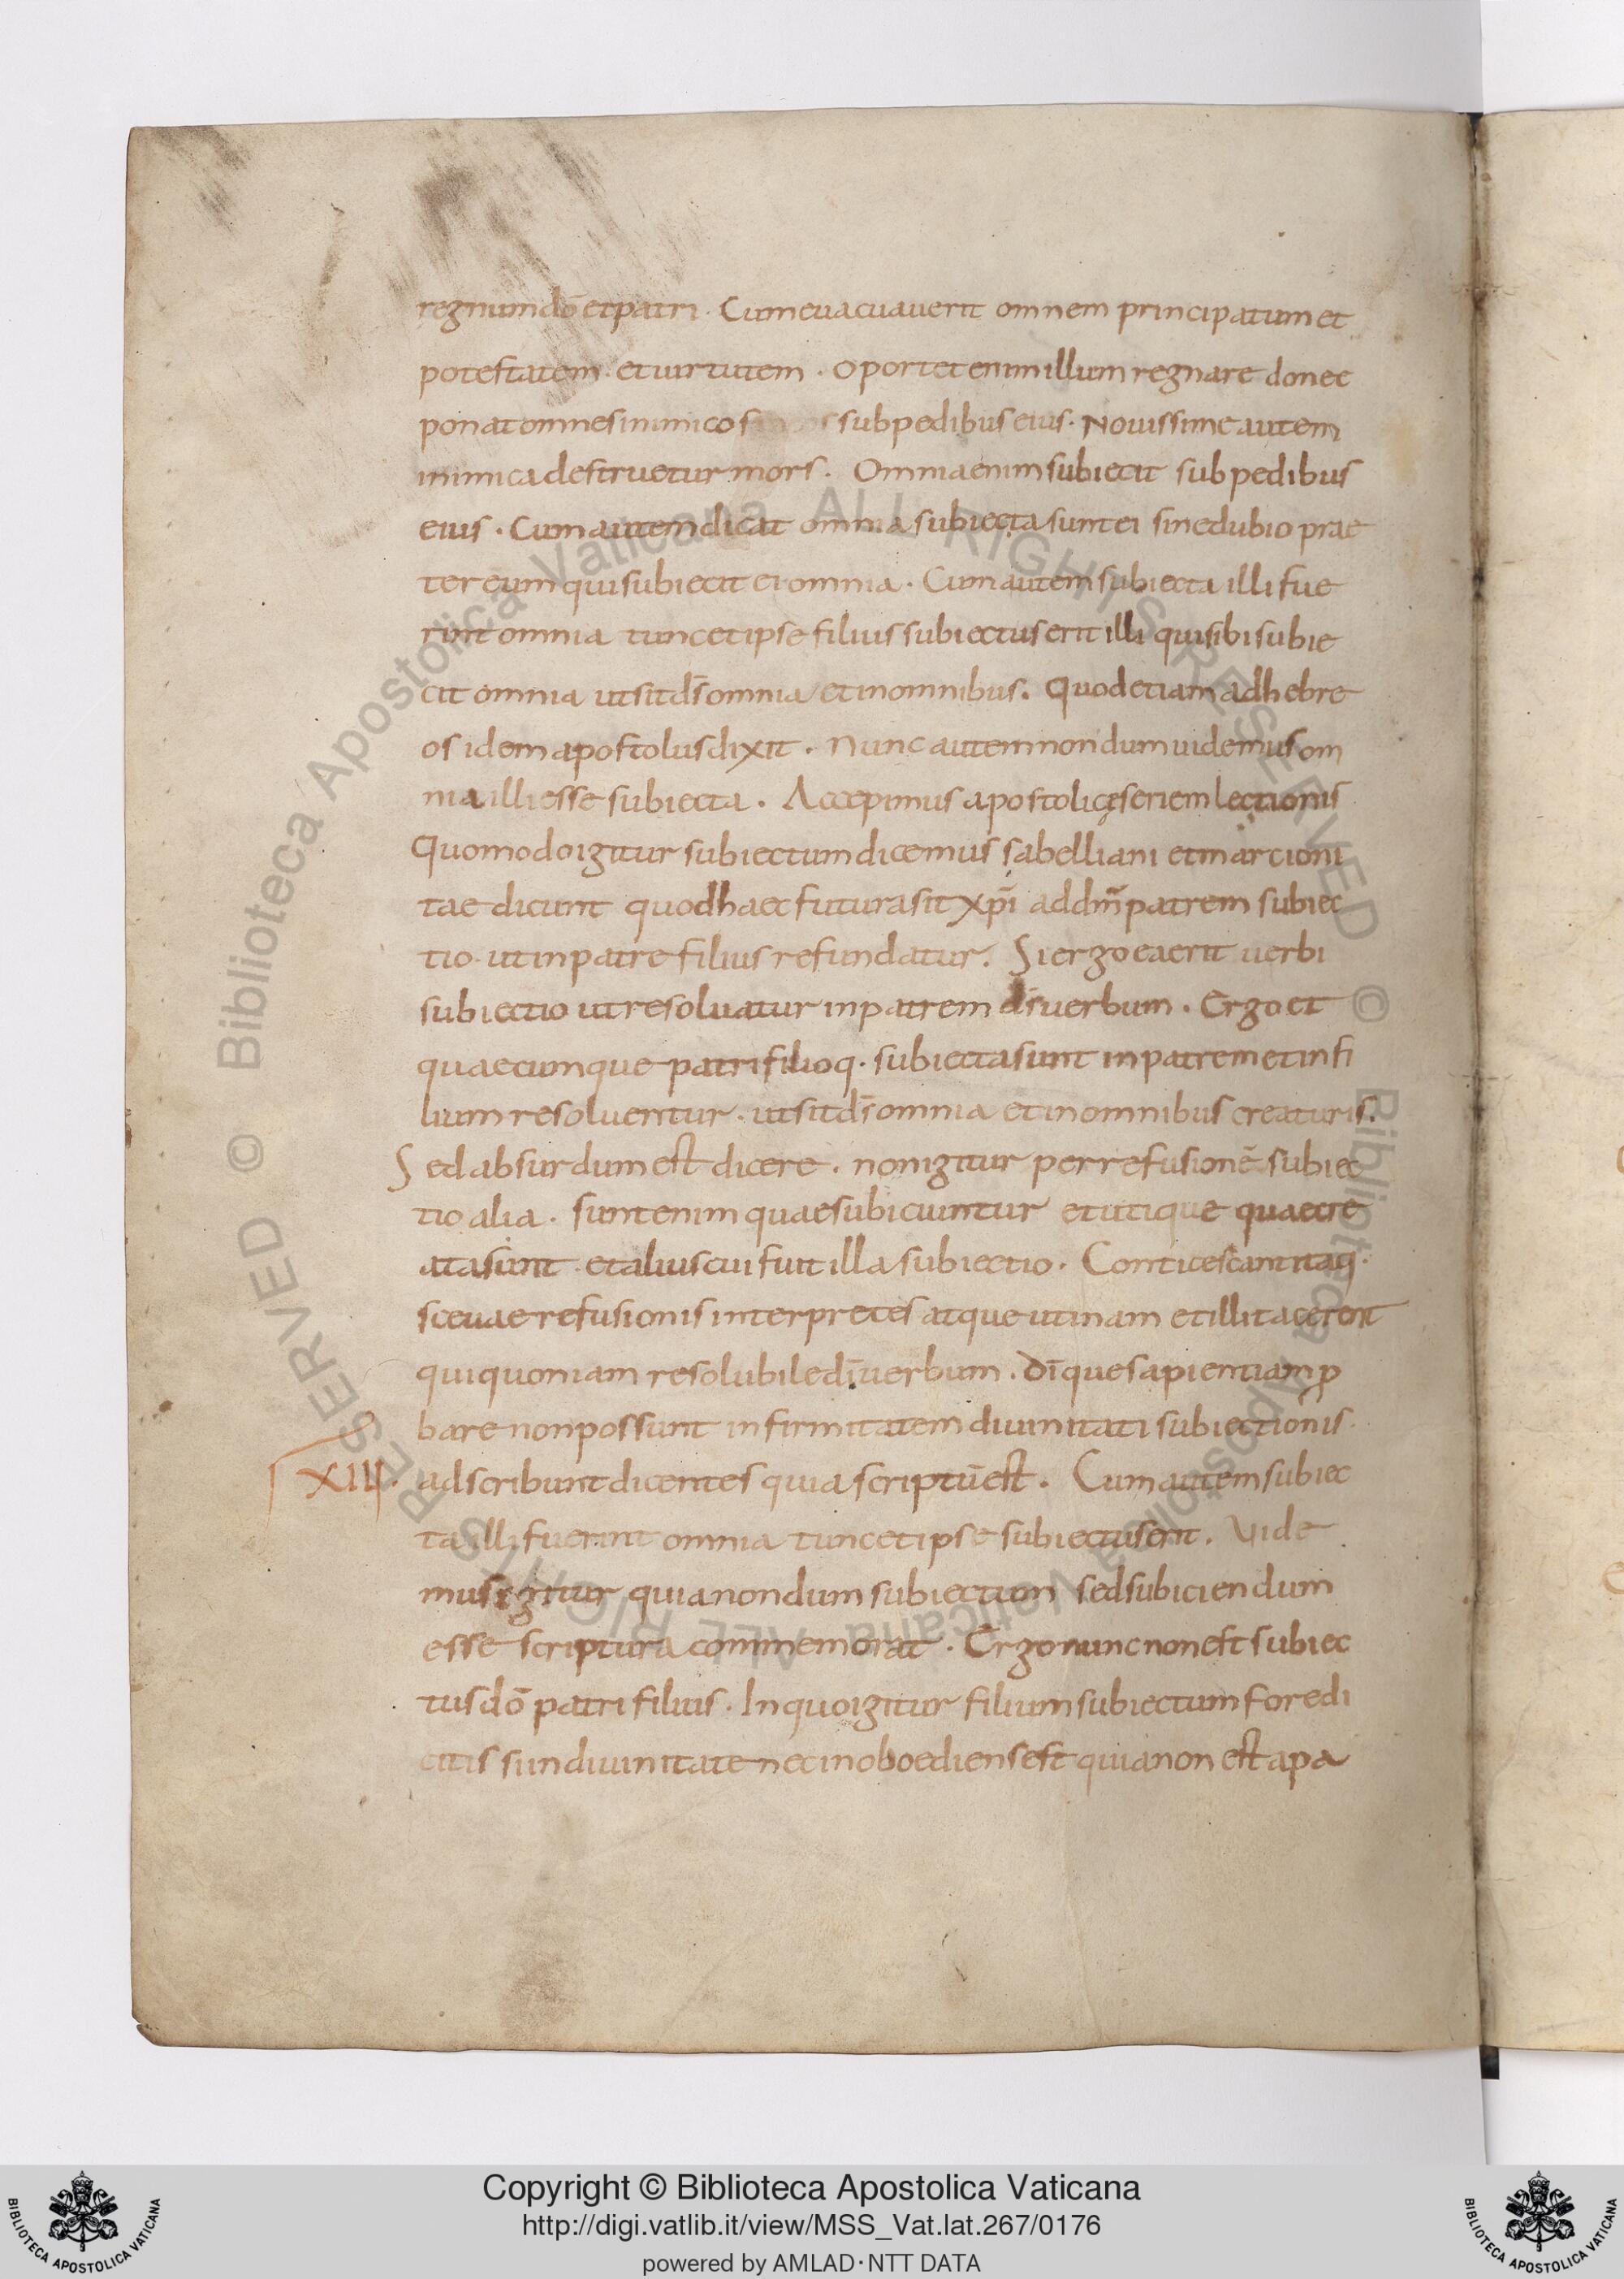 regnum dō et patri · Cum euacuauerit omnem principatum et
potestatem · et uirtutem · oportet enim illum regnare donec
ponat omnes inimicos sub pedibus eius · Nouissime autem
inimica destruetur mors · Omnia enim subiecit sub pedibus
eius · Cum autem dicat omnia subiecta sunt ei sine dubio prae
ter eum qui subiecit ei omnia · Cum autem subiecta illi fue
rint omnia tunc et ipse filius subiectus erit illi qui sibi subie
cit omnia ut sit ds̄ omnia et in omnibus. Quod etiam ad hebre
os idem apostolus dixit · Nunc autem nondum uidemus om
nia illi esse subiecta · Accepimus apostolicę seriem lectionis
Quomodo igitur subiectum dicemus sabelliani et marcioni
tae dicunt quod haec futura sit xp̄i ad dm̄ patrem subiec
tio · ut in patre filius refundatur. Si ergo ea erit uerbi
subiectio ut resoluatur in patrem ds̄ uerbum · Ergo et
quaecumque patri filioq· subiecta sunt in patrem et in fi
lium resoluentur · ut sit ds̄ omnia et in omnibus creaturis.
Sed absurdum est dicere · non igitur per refusionē subiec
tio alia · sunt enim quae subiciuntur et utique quae cre
ata sunt · et alius cui fuit illa subiectio · Conticescant itaq·
sceuae refusionis interpretes atque utinam et illi tacerent
qui quoniam resolubile dī uerbum · dīque sapientiam ꝓ
bare non possunt infirmitatem diuinitati subiectionis ·
XIII · adscribunt dicentes quia scriptū est · Cum autem subiec
ta illi fuerint omnia tunc et ipse subiectus erit. Uide
mus igitur quia nondum subiectum sed subiciendum
esse scriptura commemorat · Ergo nunc non est subiec
tus dō patri filius · In quo igitur filium subiectum fore di
citis si in diuinitate nec inoboediens est quia non est a pa
Copyright © Biblioteca Apostolica Vaticana
http://digi.vatlib.it/view/MSS_Vat.lat.267/0176
powered by AMLAD · NTT DATA
BIBLIOTECA APOSTOLICA VATICANA
BIBLIOTECA APOSTOLICA VATICANA
© Biblioteca Apostolica Vaticana ALL RIGHTS RESERVED
© Biblioteca Apostolica Vaticana ALL RIGHTS RESERVED